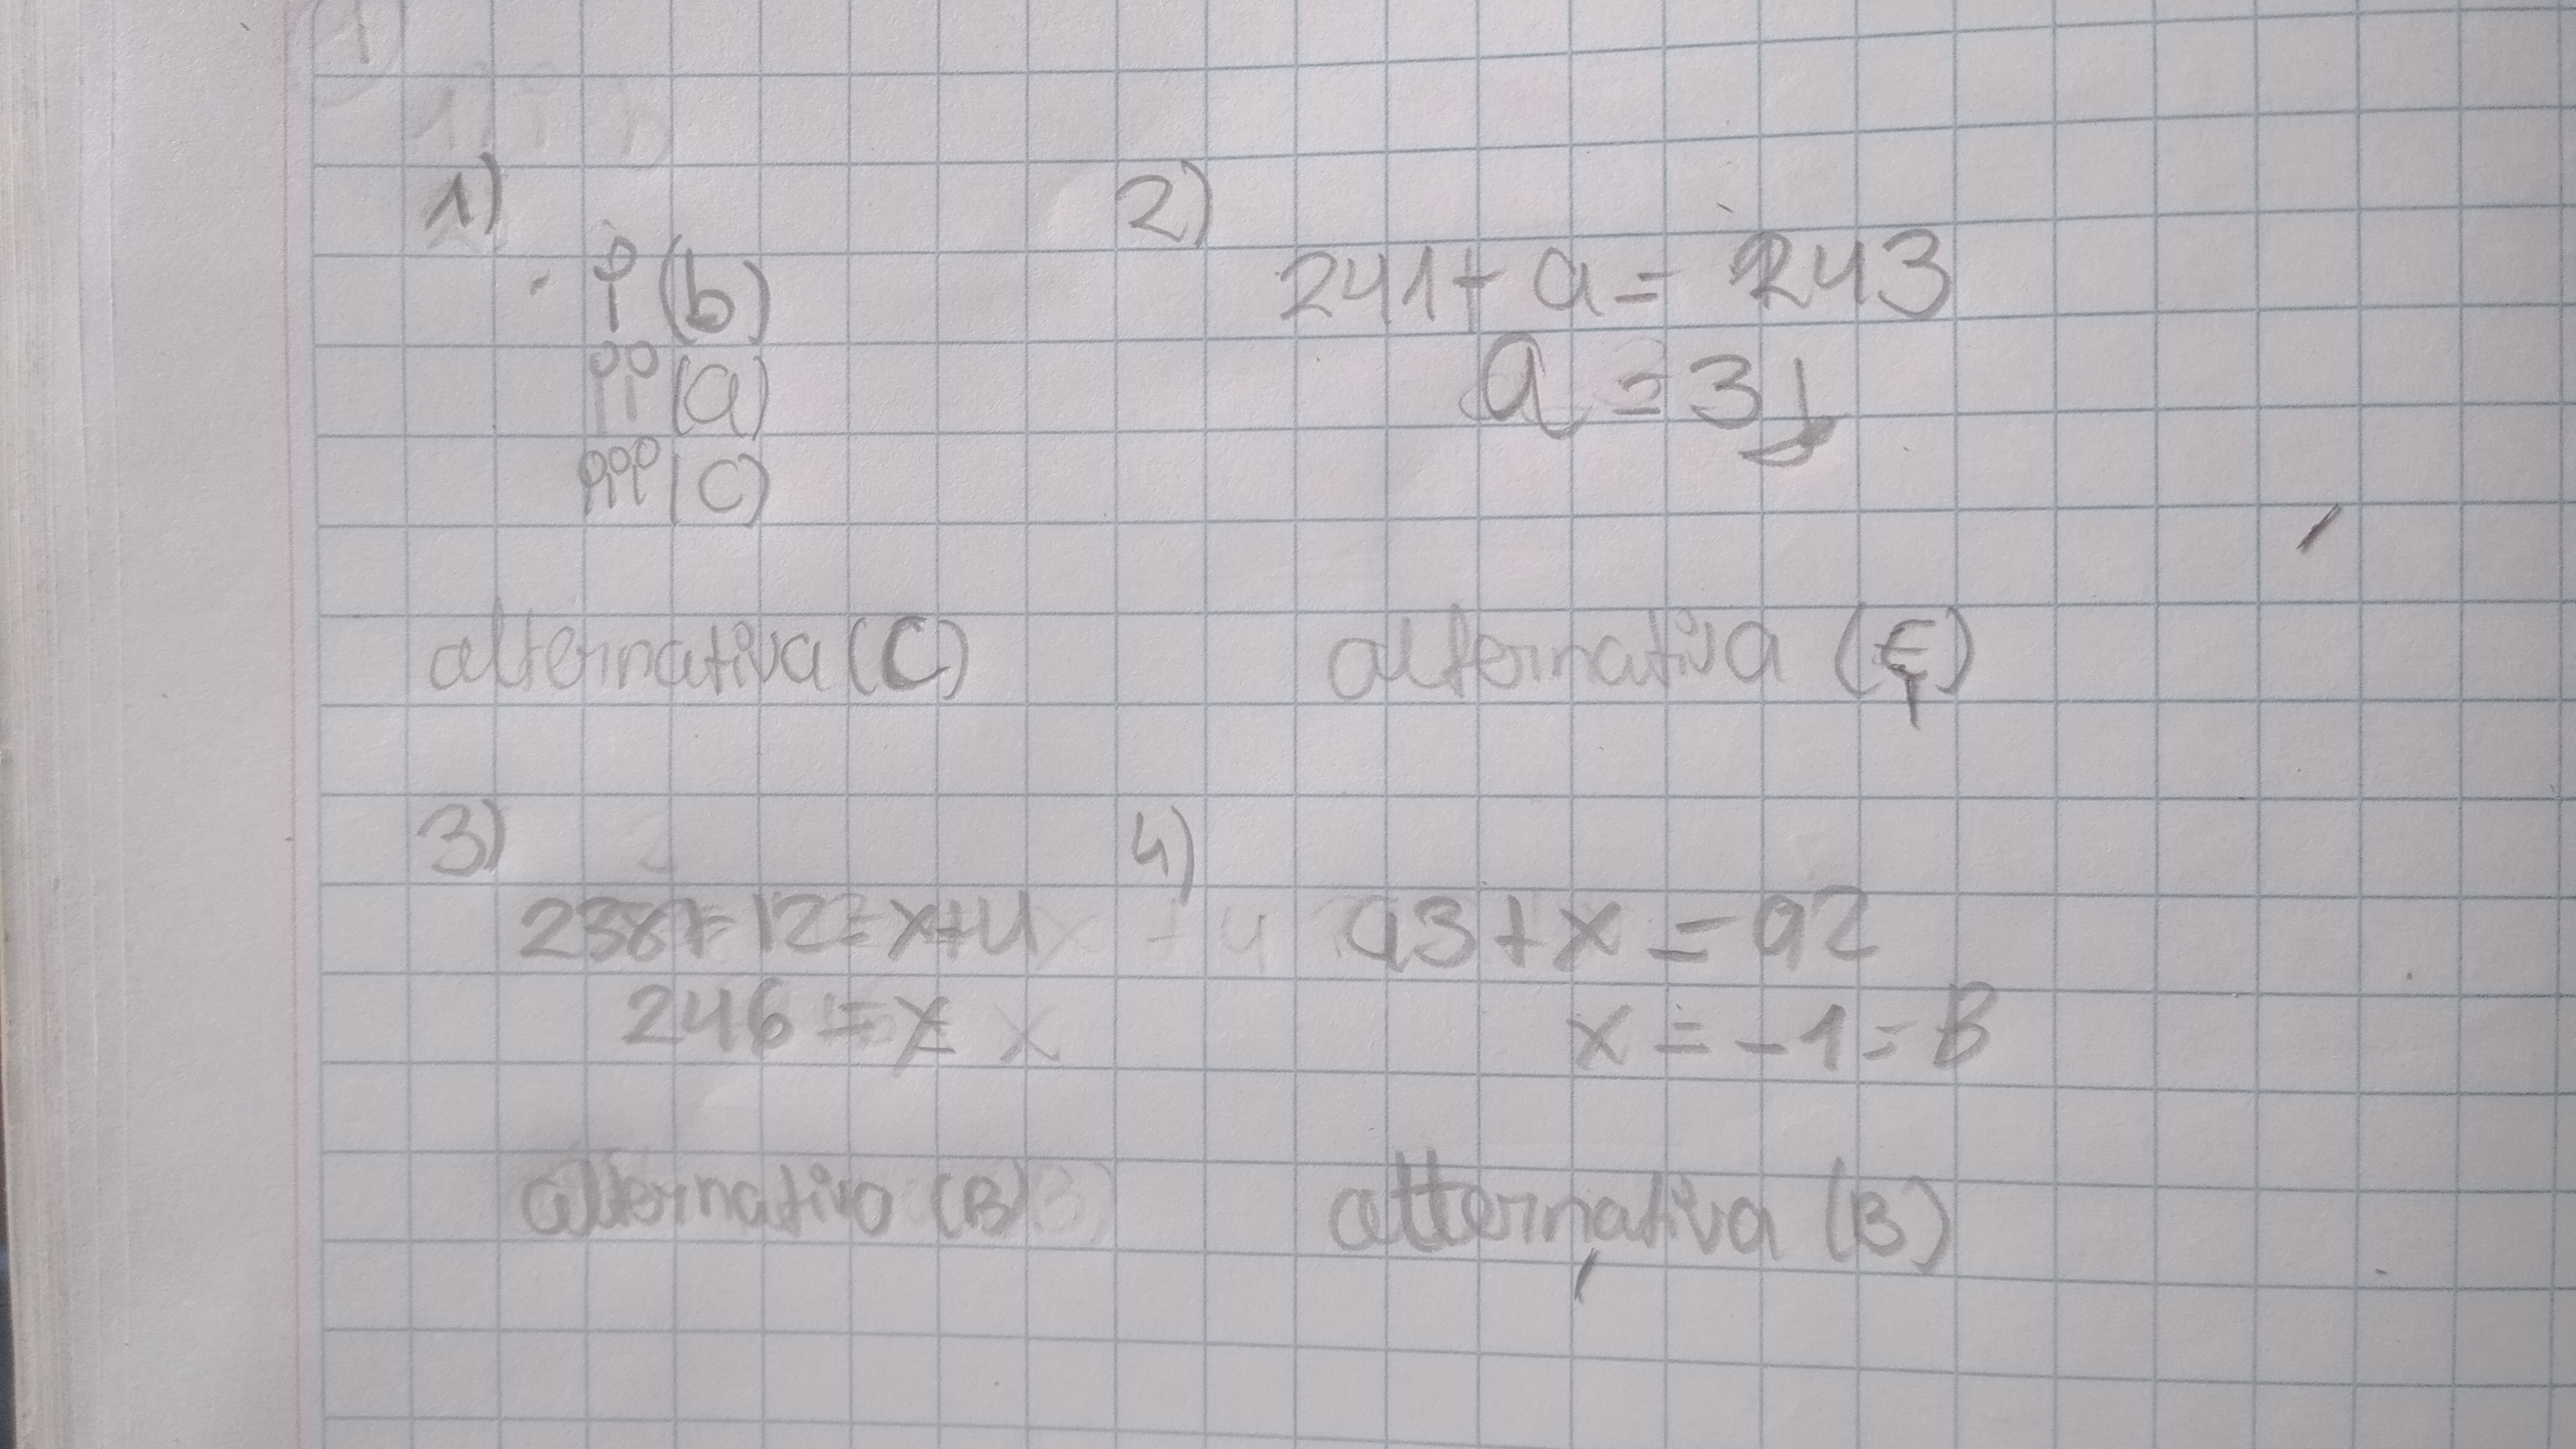 1)
(b)
(a)
(C)
alternativa (C)
2)
241+ a = 243
a = 3
alternativa
3)
238+12=x+4
246 = x
alternativa (B)
4)
93+x=92
x = -1 = B
alternativa (B)